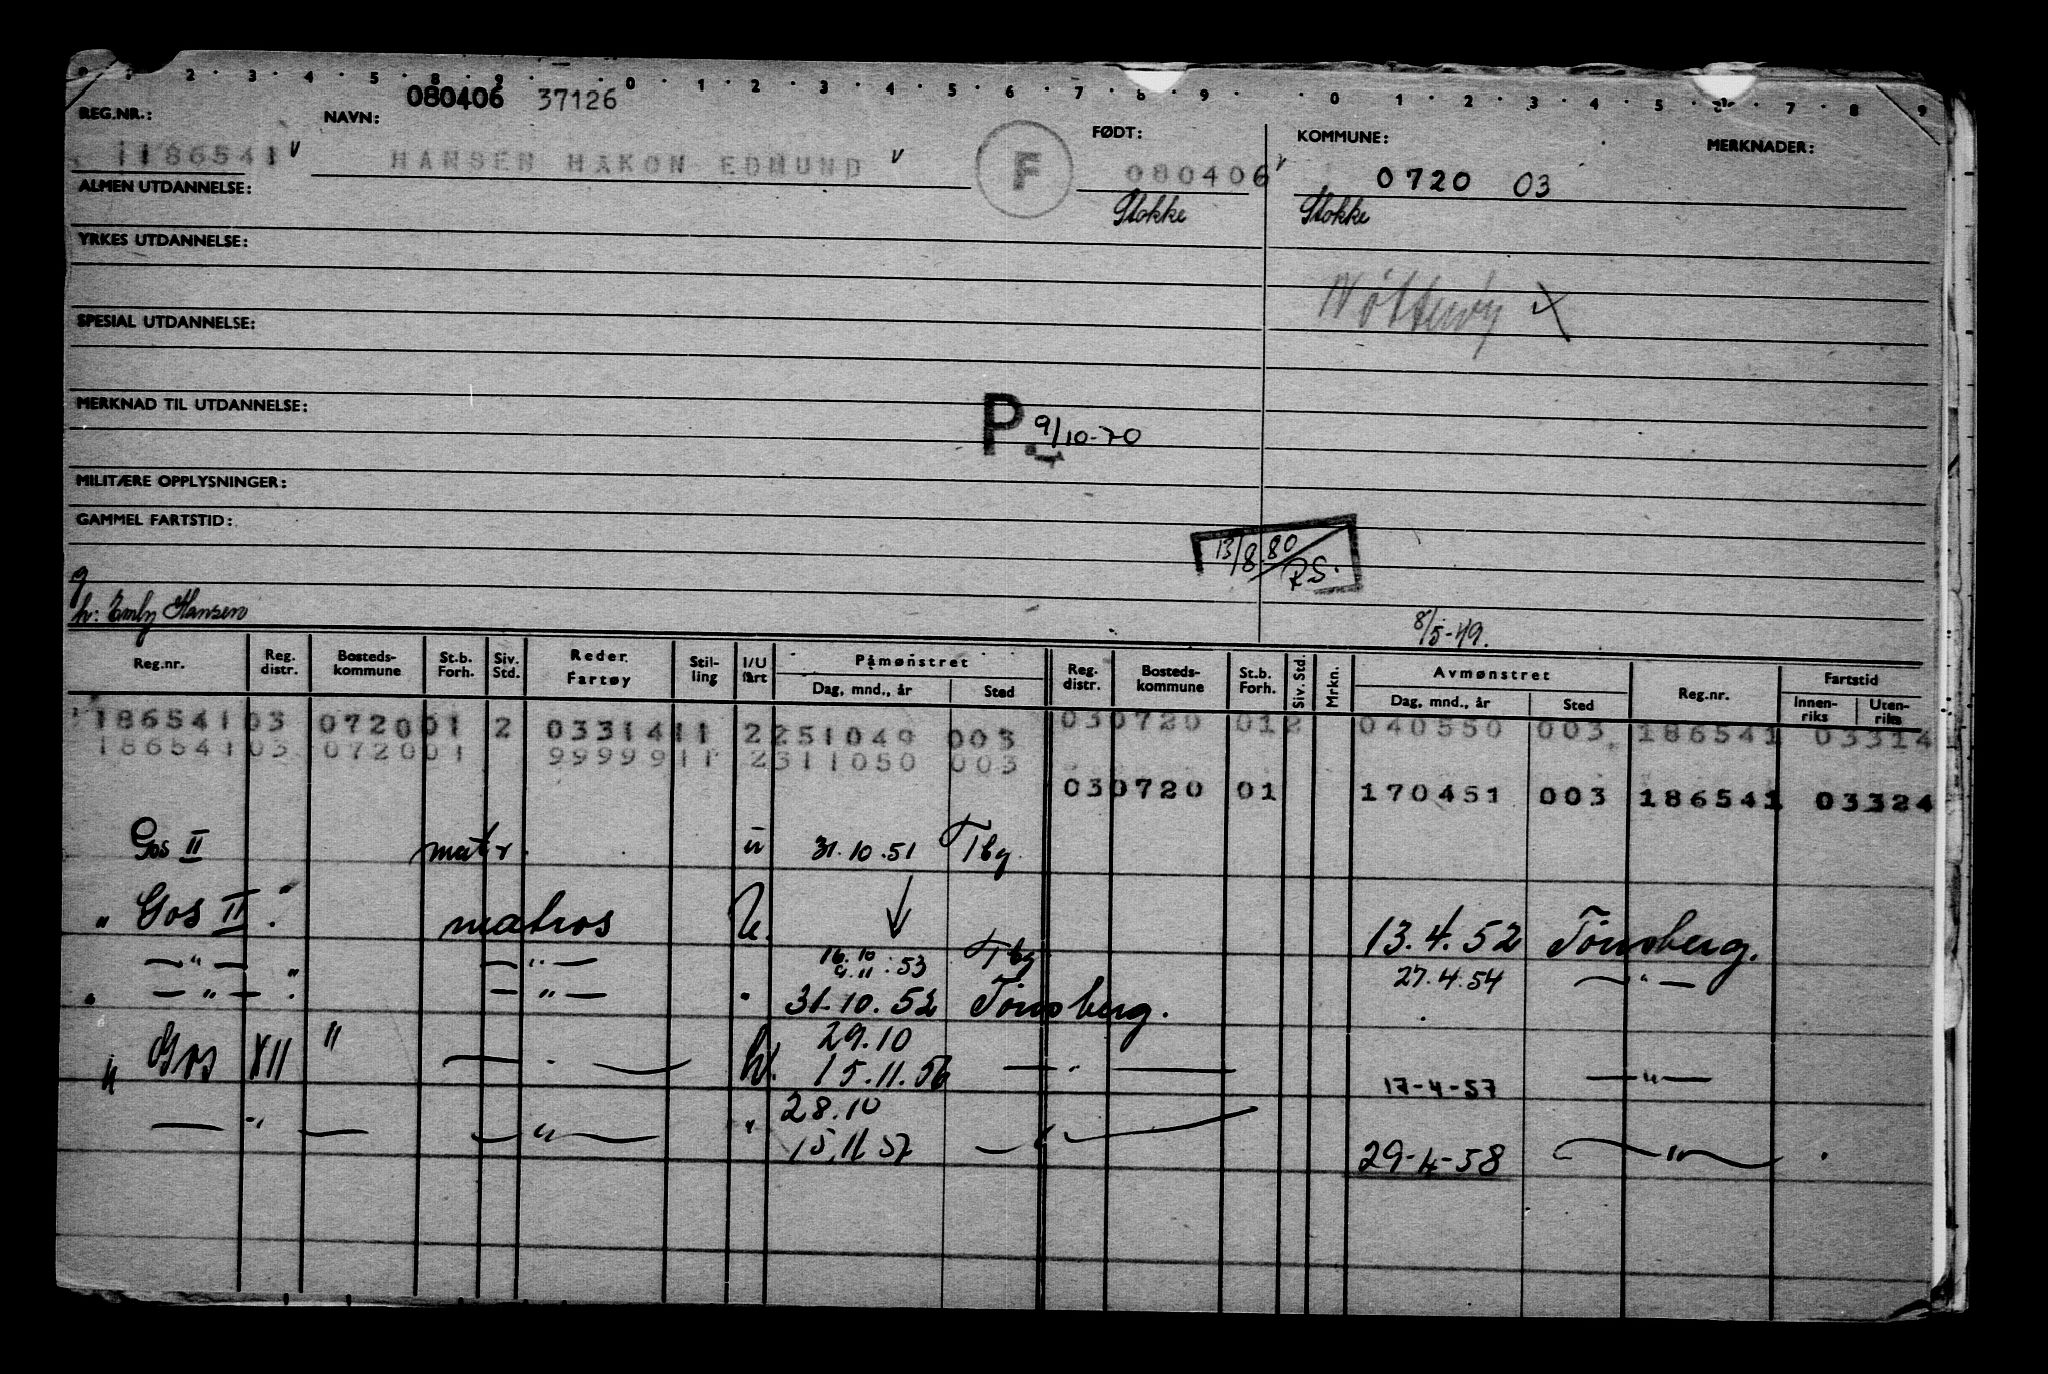 0 1 2 3 4 5 8 9 0 1 2 3 4 5 6 7 8 9 0 1 2 3 4 5 7 8 9
080406 37126
REG.NR.: NAVN: FØDT: KOMMUNE: MERKNADER:
186541 v HANSEN HAKON EDMUND v F 080406 v 0720 03
ALMEN UTDANNELSE: Stokke Stokke
YRKES UTDANNELSE:
Nøtterøy X
SPESIAL UTDANNELSE:
MERKNAD TIL UTDANNELSE:
P. 9/10-70
MILITÆRE OPPLYSNINGER:
GAMMEL FARTSTID:
13/8.80 RS.
g
h: Emly Hansen 8/5-49.
Reg.nr. Reg. distr. Bosteds-kommune St.b. Forh. Siv. Std. Reder. Fartøy Stil-ling I/U fart Påmønstret Dag, mnd., år Sted Reg. distr. Bosteds-kommune St.b. Forh. Siv. Std. Mrkn. Avmønstret Dag, mnd., år Sted Reg.nr. Fartstid Innen-riks Uten-riks
186541 03 0720 01 2 03314 11 2 251049 003 03 0720 01 2 040550 003 186541 03314
186541 03 0720 01 99999 11 2 311050 003
03 0720 01 170451 003 186541 03324
Gos II matr. u 31.10.51 Tbg
" Gos II. " matros U. 13.4.52 Tönsberg.
— " — " — " — 16.10 9.11.53 Tbg 27.4.54 — " —
" — " — . — " — " 31.10.52 Tönsberg.
" Gos XII " — " — U. 29.10 15.11.56 — " — 17-4-57 — " —
— " — — " — " 28.10 15.11.57 — " — 29-4-58 — " — .